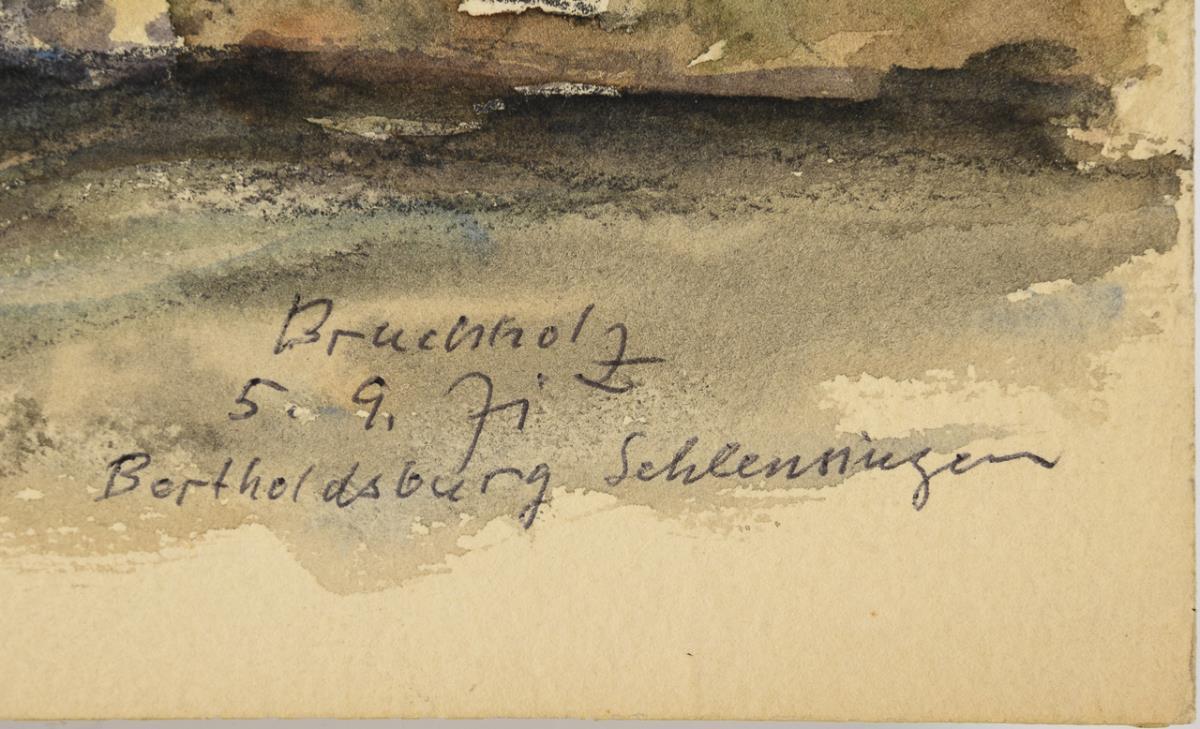 Bruchholz
5. 9. 71
Bertholdsburg Schleusingen